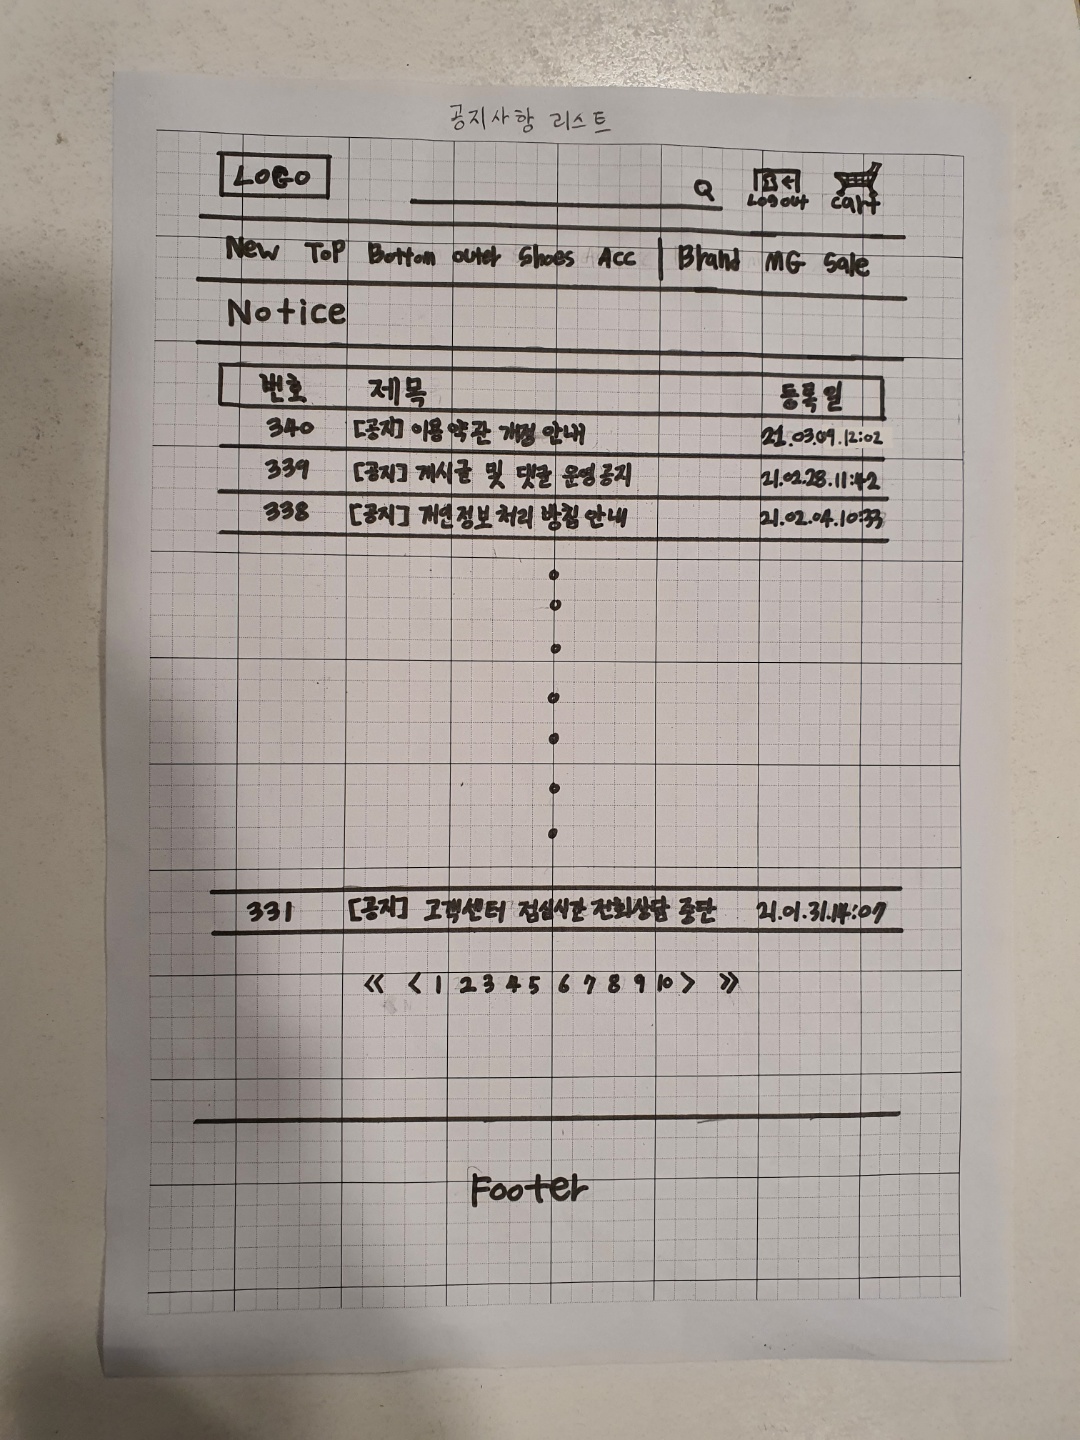 공지사항 리스트
LOGO
Logout cart
New Top Bottom outer Shoes Acc | Brand MG Sale
Notice
번호 제목 등록일
340 [공지] 이용약관 개정 안내 21.03.09.12:02
339 [공지] 게시글 및 댓글 운영공지 21.02.28.11:42
338 [공지] 개인정보처리 방침 안내 21.02.04.10:33
331 [공지] 고객센터 점심시간 전화상담 중단 21.01.31.14:07
« < 1 2 3 4 5 6 7 8 9 10 > »
Footer